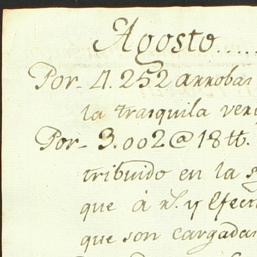 Agosto.....
Por_ 4.252 arrobas
la trasquila ver
Por_ 3.002@18 tt.
tribuido en la
que á rl. y
que son cargada